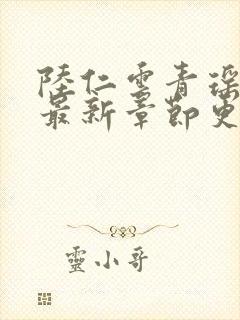 陸仁雲青瑶
最新章節更
靈小哥